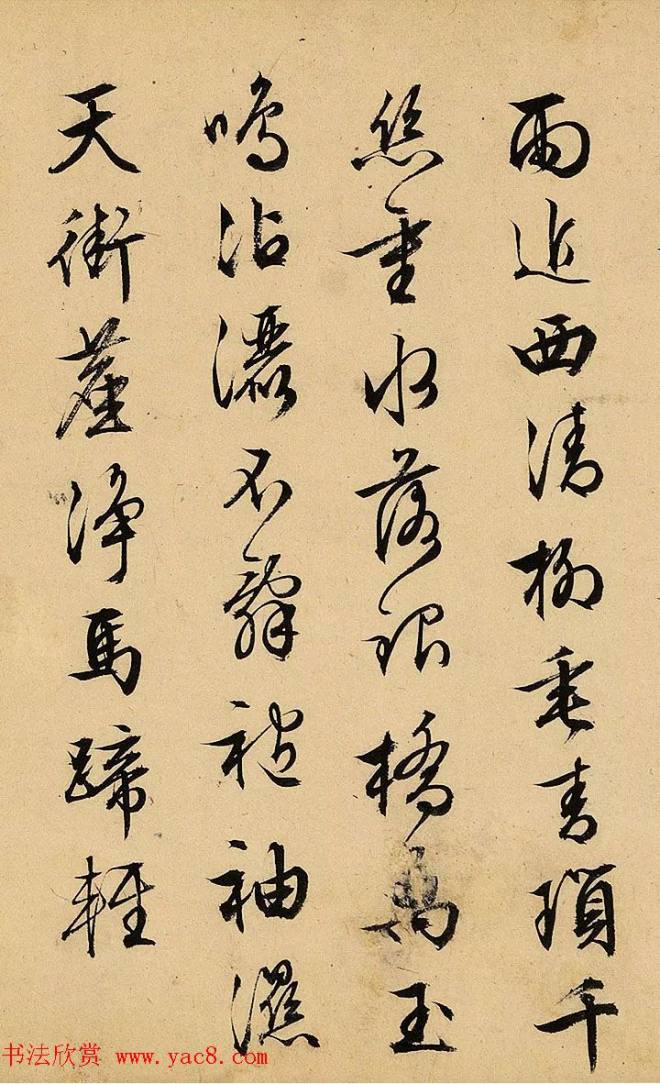 雨近西清柳垂青瑣千
絲重水落銀橋萬玉
鳴沾灑不辭袍袖濕
天街塵淨馬蹄輕
书法欣赏 www.yac8.com